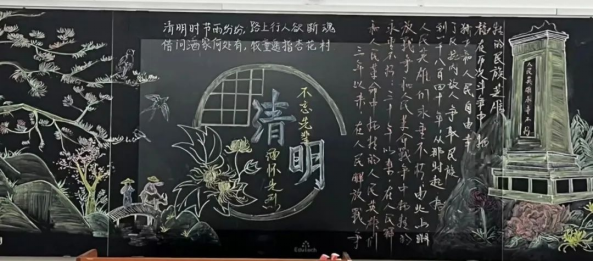 清明时节雨纷纷，路上行人欲断魂
借问酒家何处有，牧童遥指杏花村
不忘先辈
清明
缅怀先烈
三年以来，在人民解放战争
和人民革命中牺牲的人民英雄们
永垂不朽 三十年以来，在人民解
放战争和人民革命中牺牲的
人民英雄们永垂不朽 由此上溯
到一千八百四十年，从那时起，为
了反对内外敌，争取民族
和人民自由幸
在历次斗争中牺牲
的民族英雄
人民英雄永垂不朽